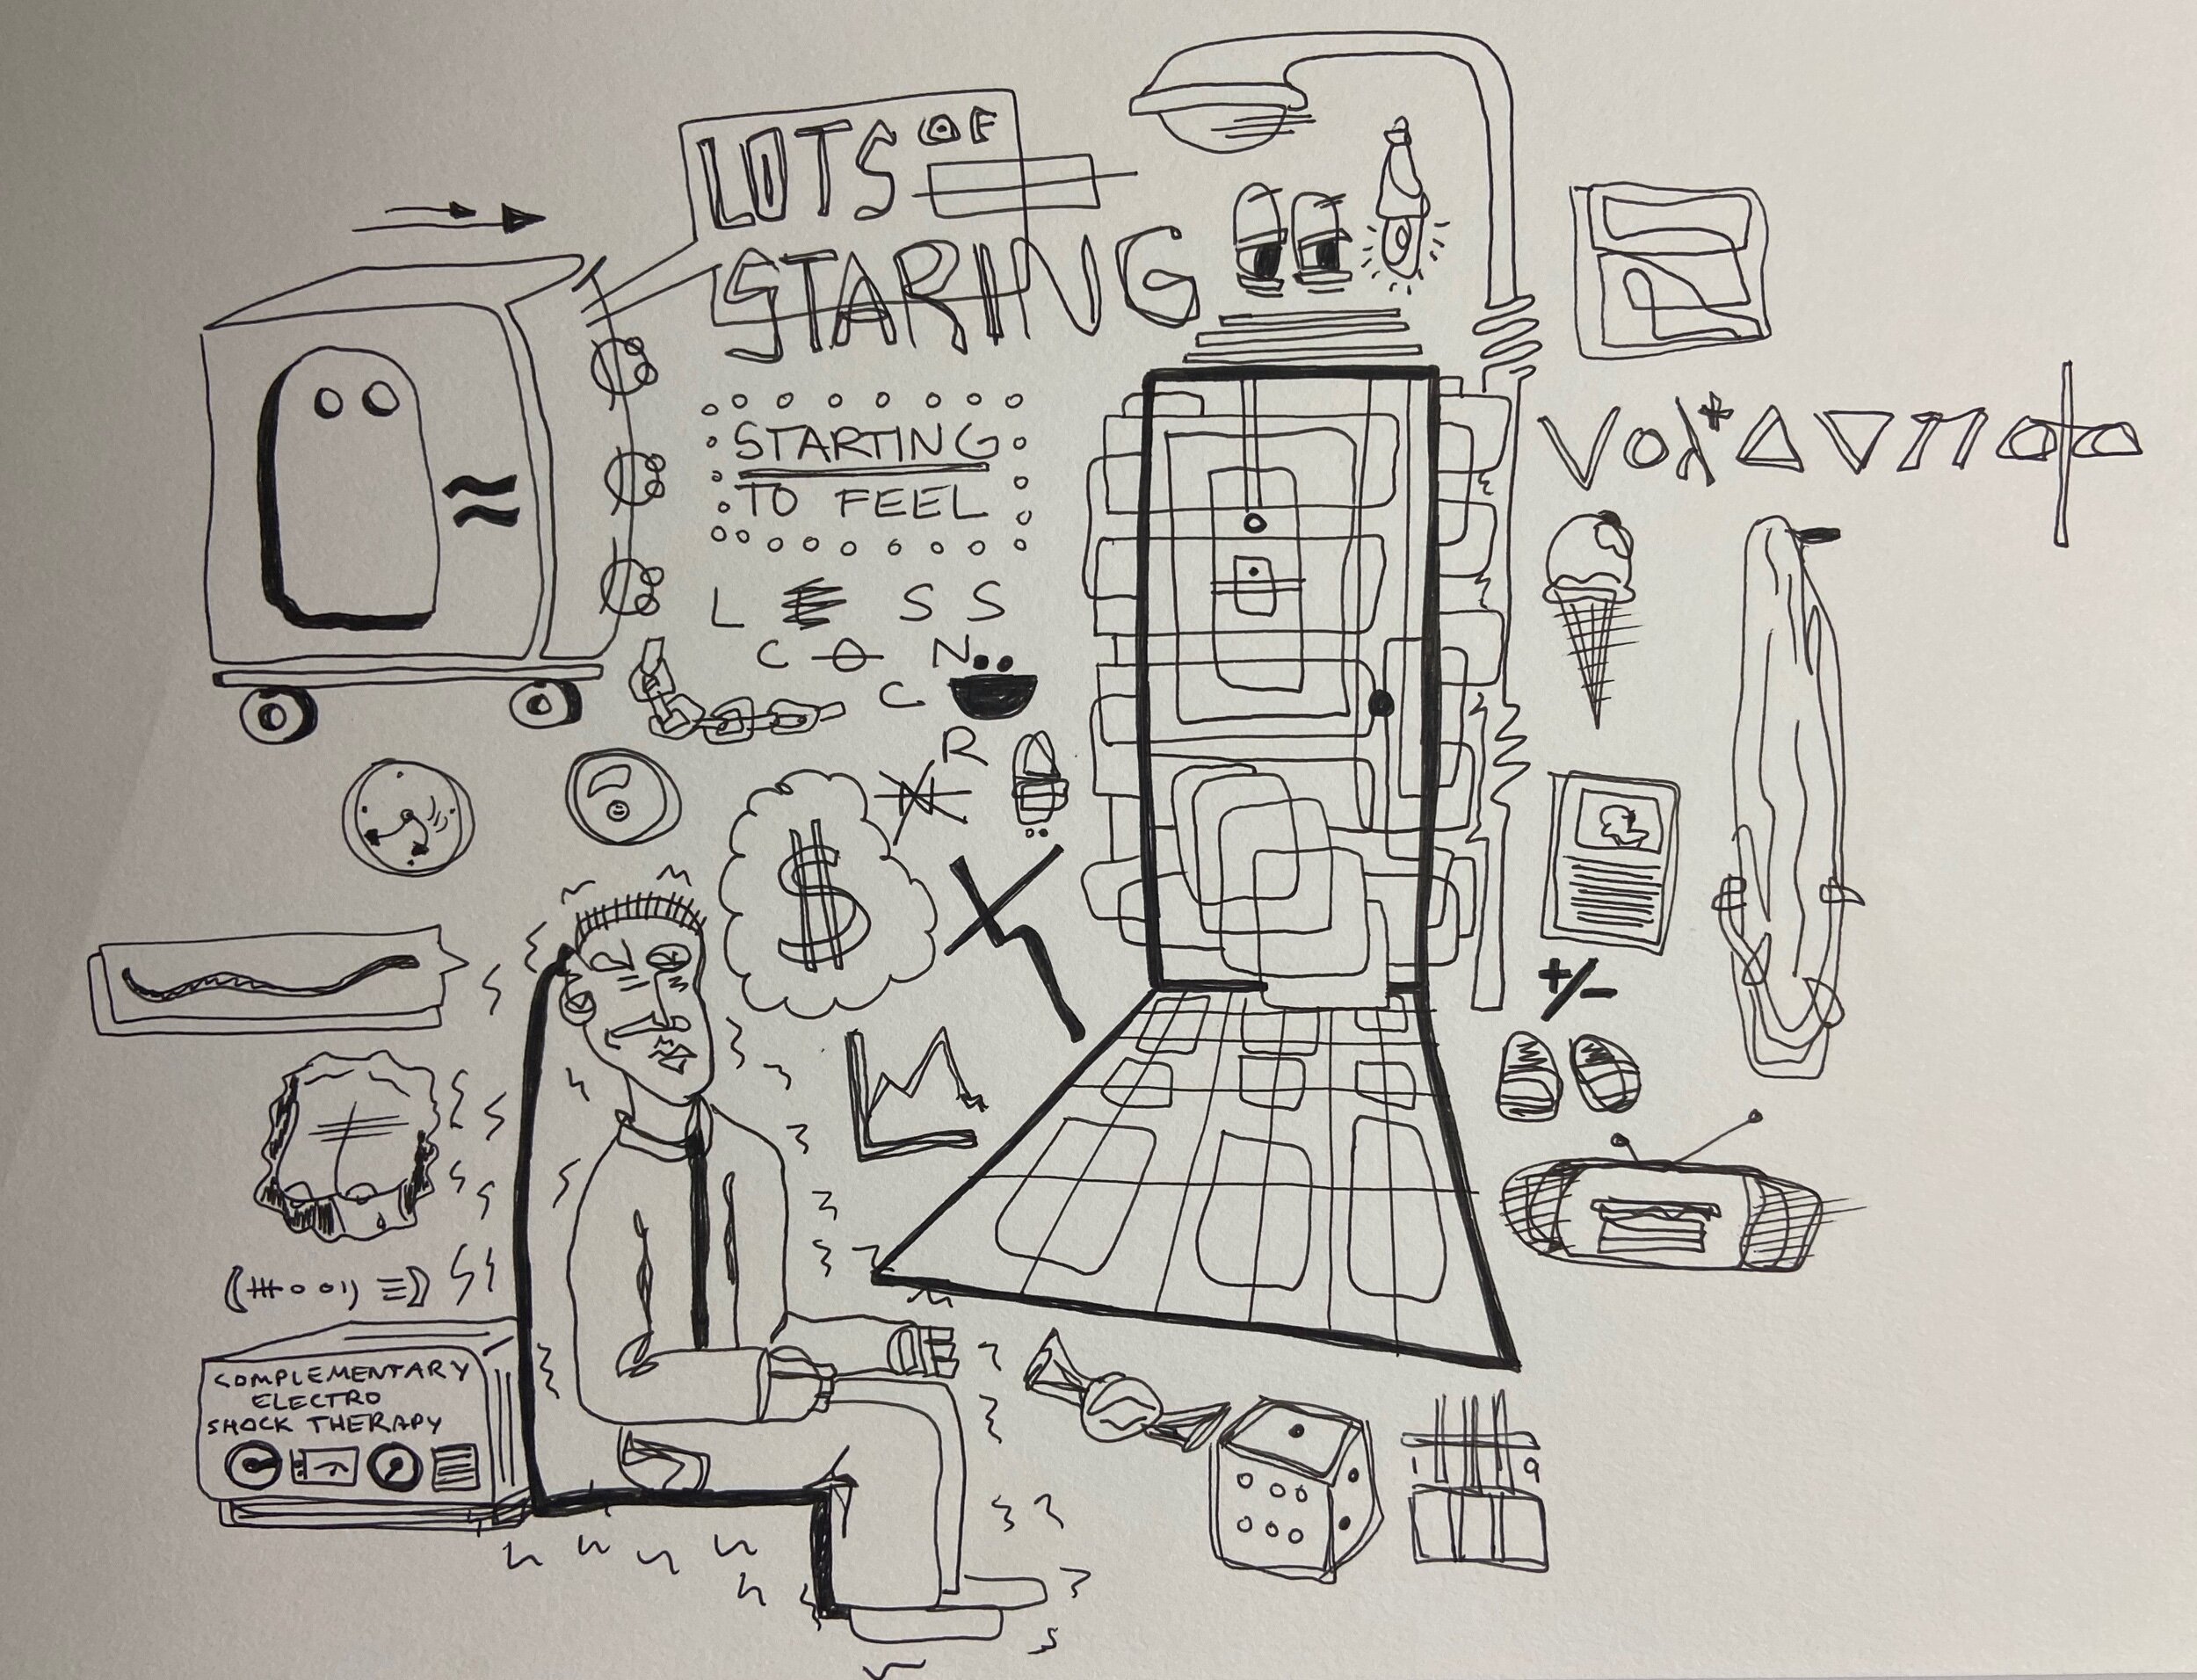 LOTS OF
STARING
STARTING
TO FEEL
L E S S
C O N
C
R
N
$
+/-
COMPLEMENTARY
ELECTRO
SHOCK THERAPY
1 9